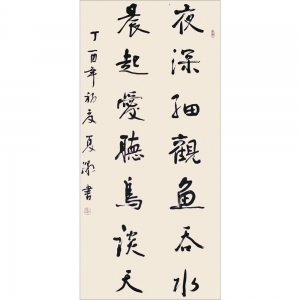 夜深細觀魚吞水
晨起愛聽鳥談天
丁酉年初度夏書